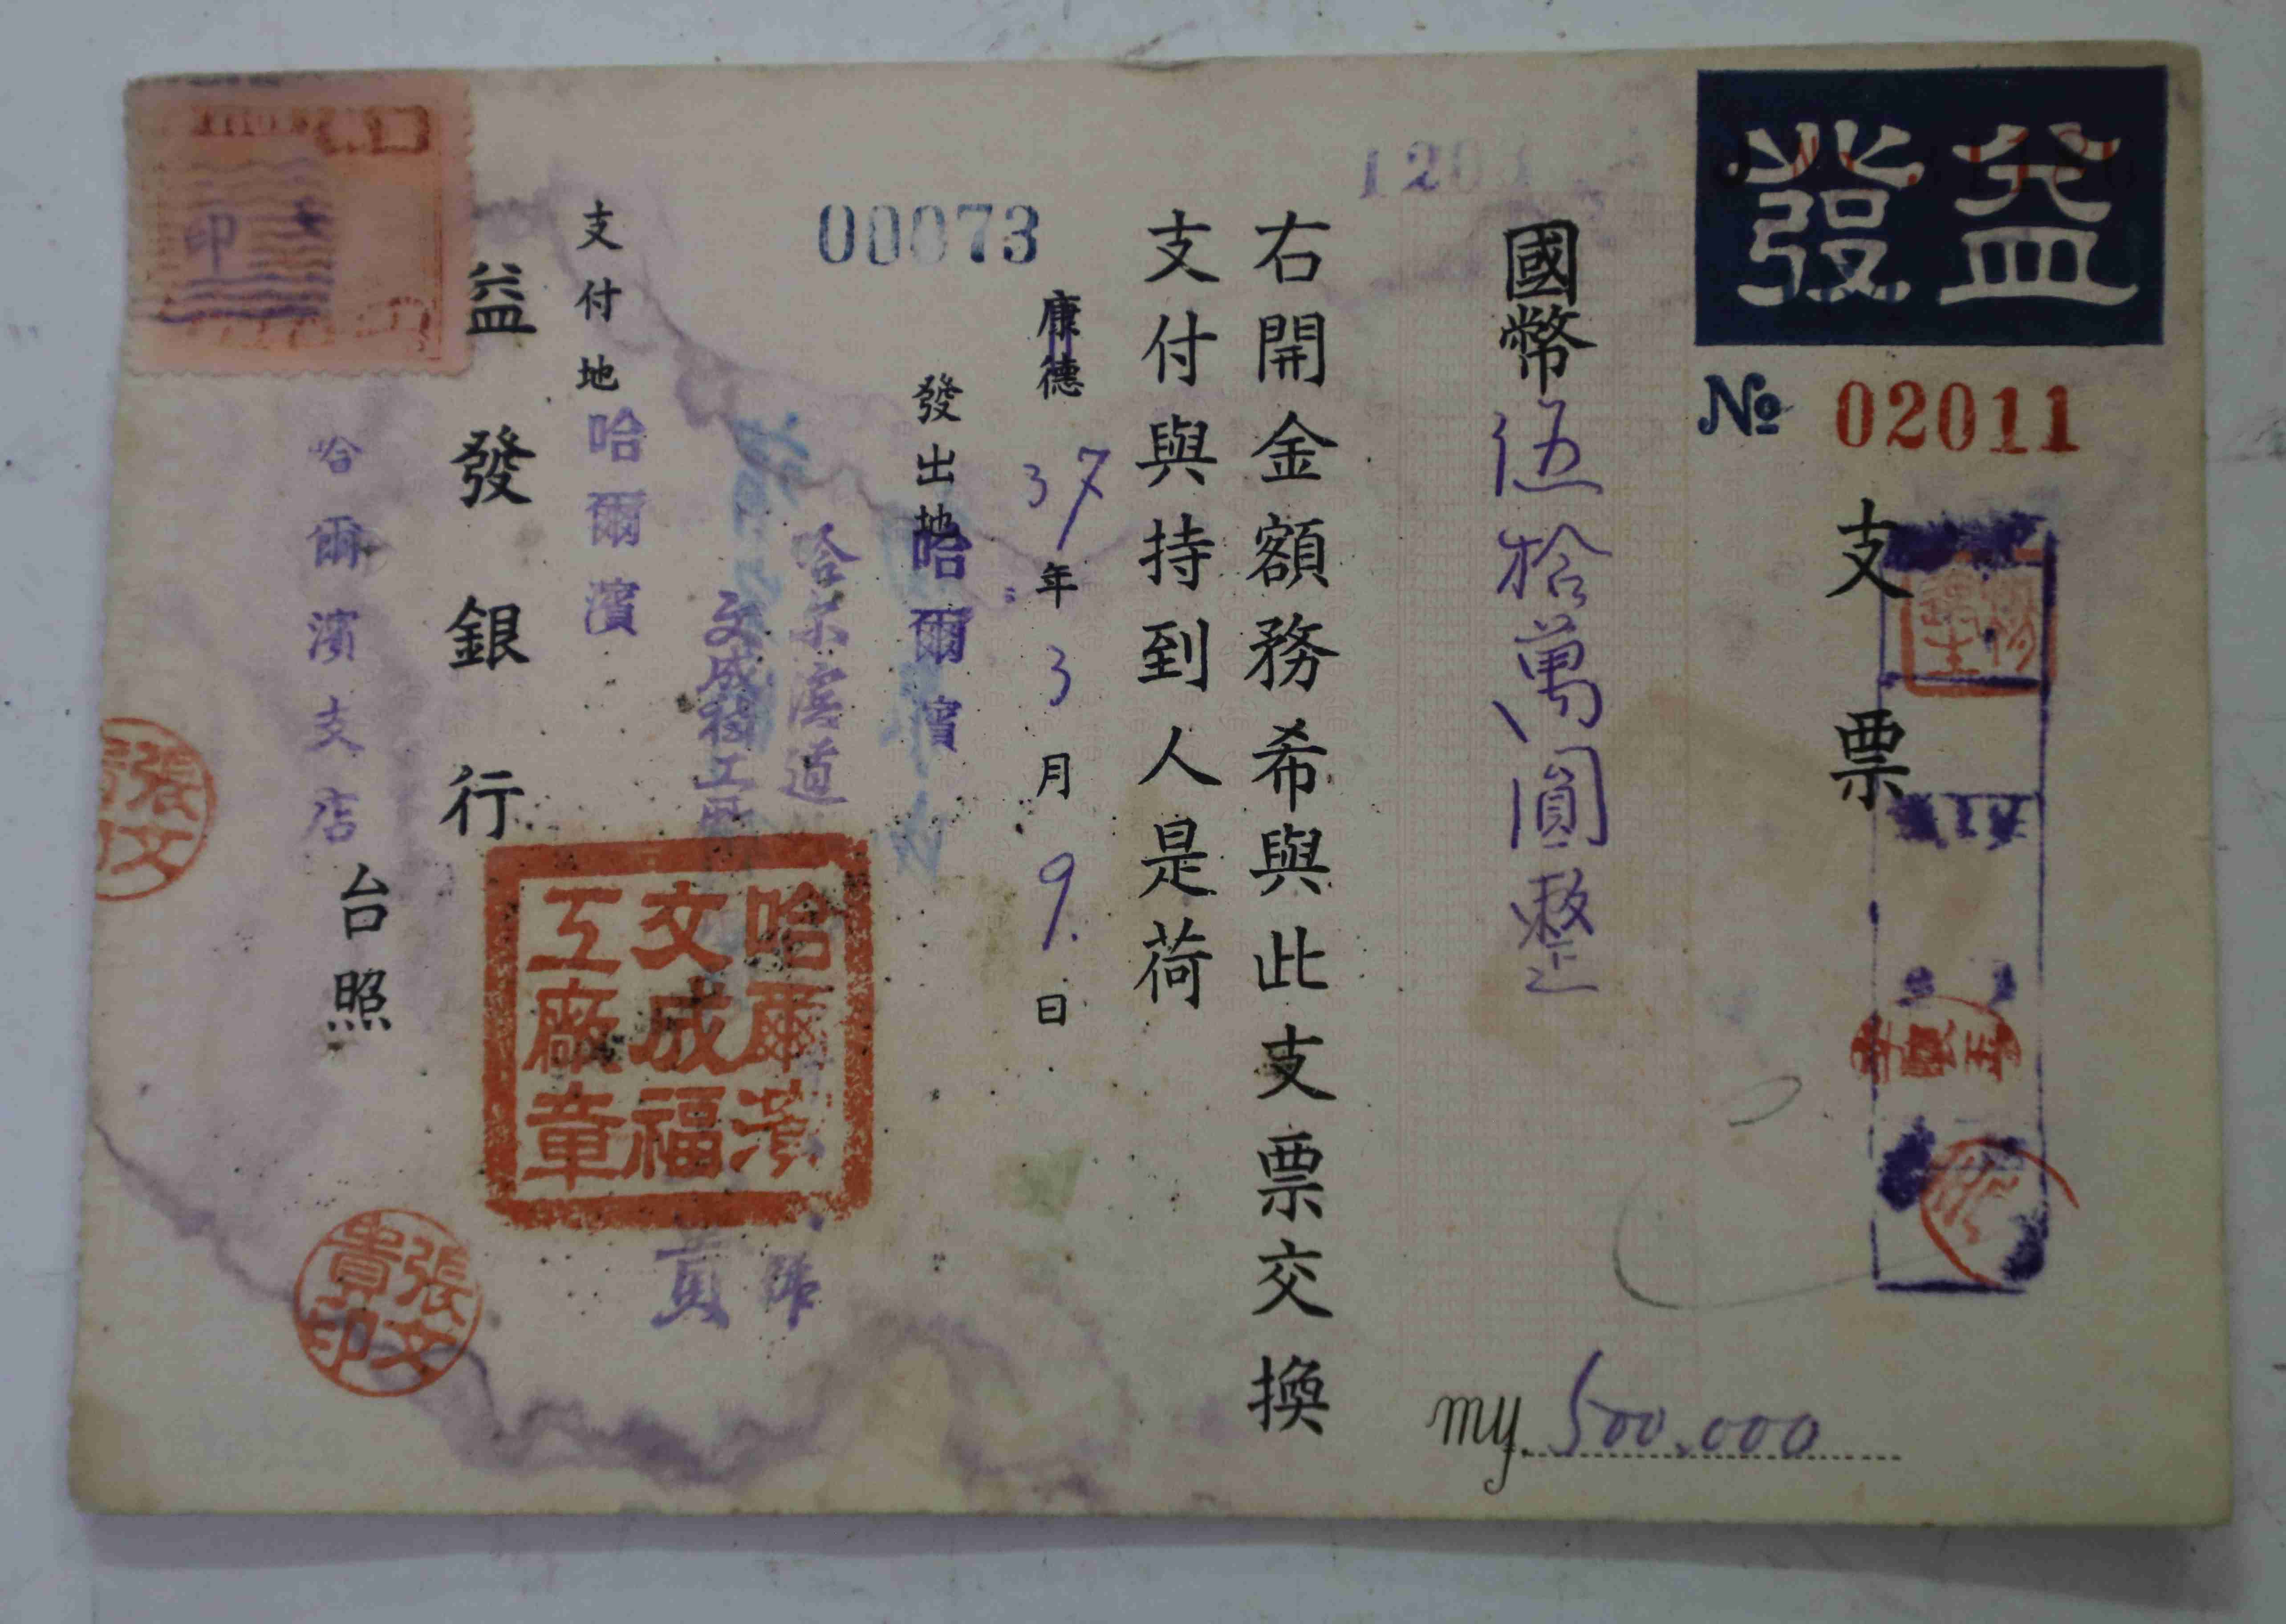 益發
№ 02011
支票
國幣伍拾萬圓整
my. 500.000
右開金額務希與此支票交換
支付與持到人是荷
康德37年3月9日
00073
發出地哈爾濱
哈尔滨道
文成福工厰
哈爾濱
文成福
工廠章
支付地哈爾濱
益發銀行
哈爾濱支店台照
張文
貴印
張文